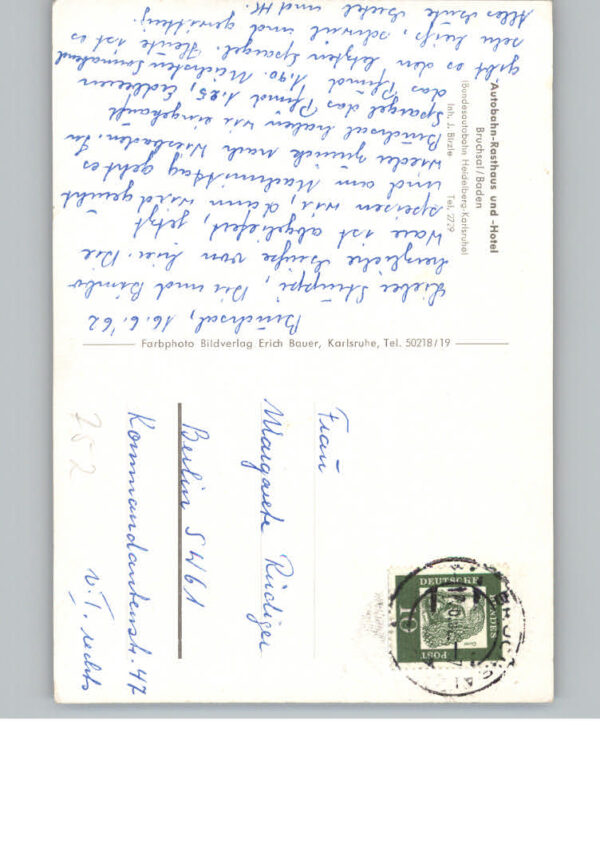 Autobahn-Rasthaus und -Hotel
Bruchsal/Baden
(Bundesautobahn Heidelberg-Karlsruhe)
Inh. J. Birzle Tel. 2729
Bruchsal, 16.6.'62
Lieber Struppi, Dir und Bimbo
herzliche Grüße von hier. Die
Ware ist abgeliefert, jetzt
speisen wir, dann wird geruht
und am Nachmittag geht es
wieder zurück nach Wiesbaden. In
Bruchsal haben wir eingekauft
Spargel das Pfund 1.25, Erdbeeren
das Pfund 1,90. Nächsten Sonnabend
gibt es den letzten Spargel. Heute ist es
sehr heiß, schwül und gewittrig.
Alles Gute und
Farbphoto Bildverlag Erich Bauer, Karlsruhe, Tel. 50218/19
DEUTSCHE
BUNDES
POST
10
BRUCHSAL
Frau
Margarete Rüdiger
Berlin SW61
Kommandantenstr. 47
v. I. rechts
752